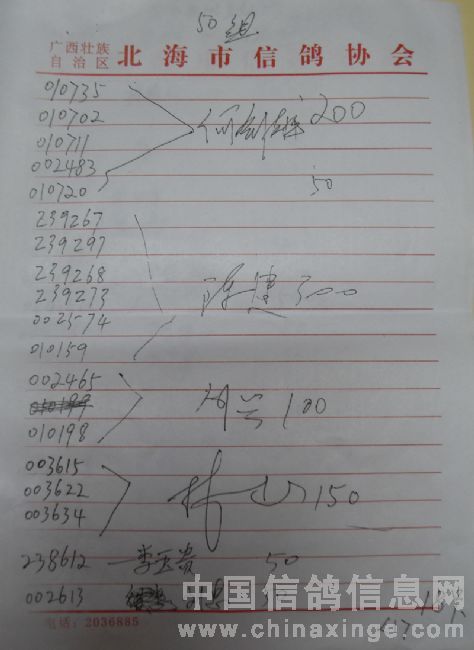 50组
广西壮族
自治区
北海市信鸽协会
010735
010702
200
010711
002483
010720
50
239267
239297
239268
239273
陈建 300
002574
010159
002465
100
010198
003615
003622
林 150
003634
238612 李玉贵 50
002613
电话：2036885
中国信鸽信息网
www.chinaxinge.com